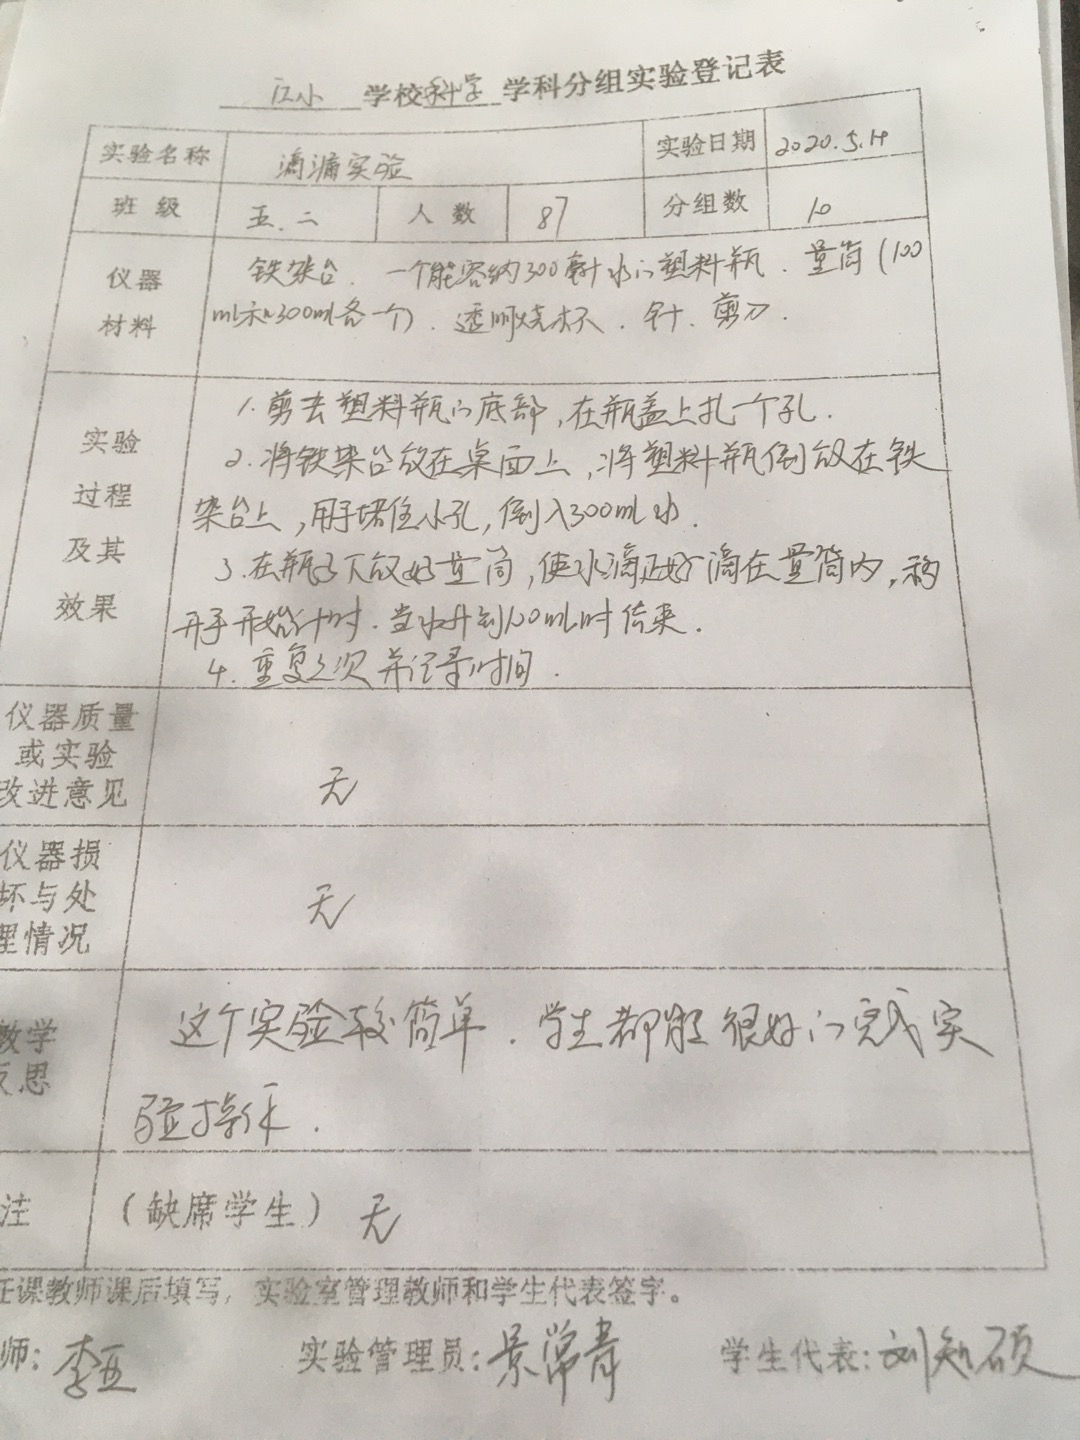 江小 学校科学学科分组实验登记表
实验名称 滴漏实验 实验日期 2020.5.19
班级 五.二 人数 87 分组数 10
仪器材料 铁架台．一个能容纳300毫升水的塑料瓶．量筒（100
ml和300ml各一个）．透明烧杯．针．剪刀．
实验过程及其效果
1.剪去塑料瓶的底部，在瓶盖上扎一个孔．
2.将铁架台放在桌面上，将塑料瓶倒放在铁
架台上，用手堵住小孔，倒入300ml水．
3.在瓶子下放好量筒，使水滴正好滴在量筒内，移
开手开始计时．当水升到100ml时结束．
4.重复2次并记录时间．
仪器质量
或实验
改进意见
无
仪器损
坏与处
理情况
无
教学
反思
这个实验较简单．学生都能很好的完成实
验操作．
注 （缺席学生） 无
任课教师课后填写，实验室管理教师和学生代表签字。
师：李亚 实验管理员：景常青 学生代表：刘知硕